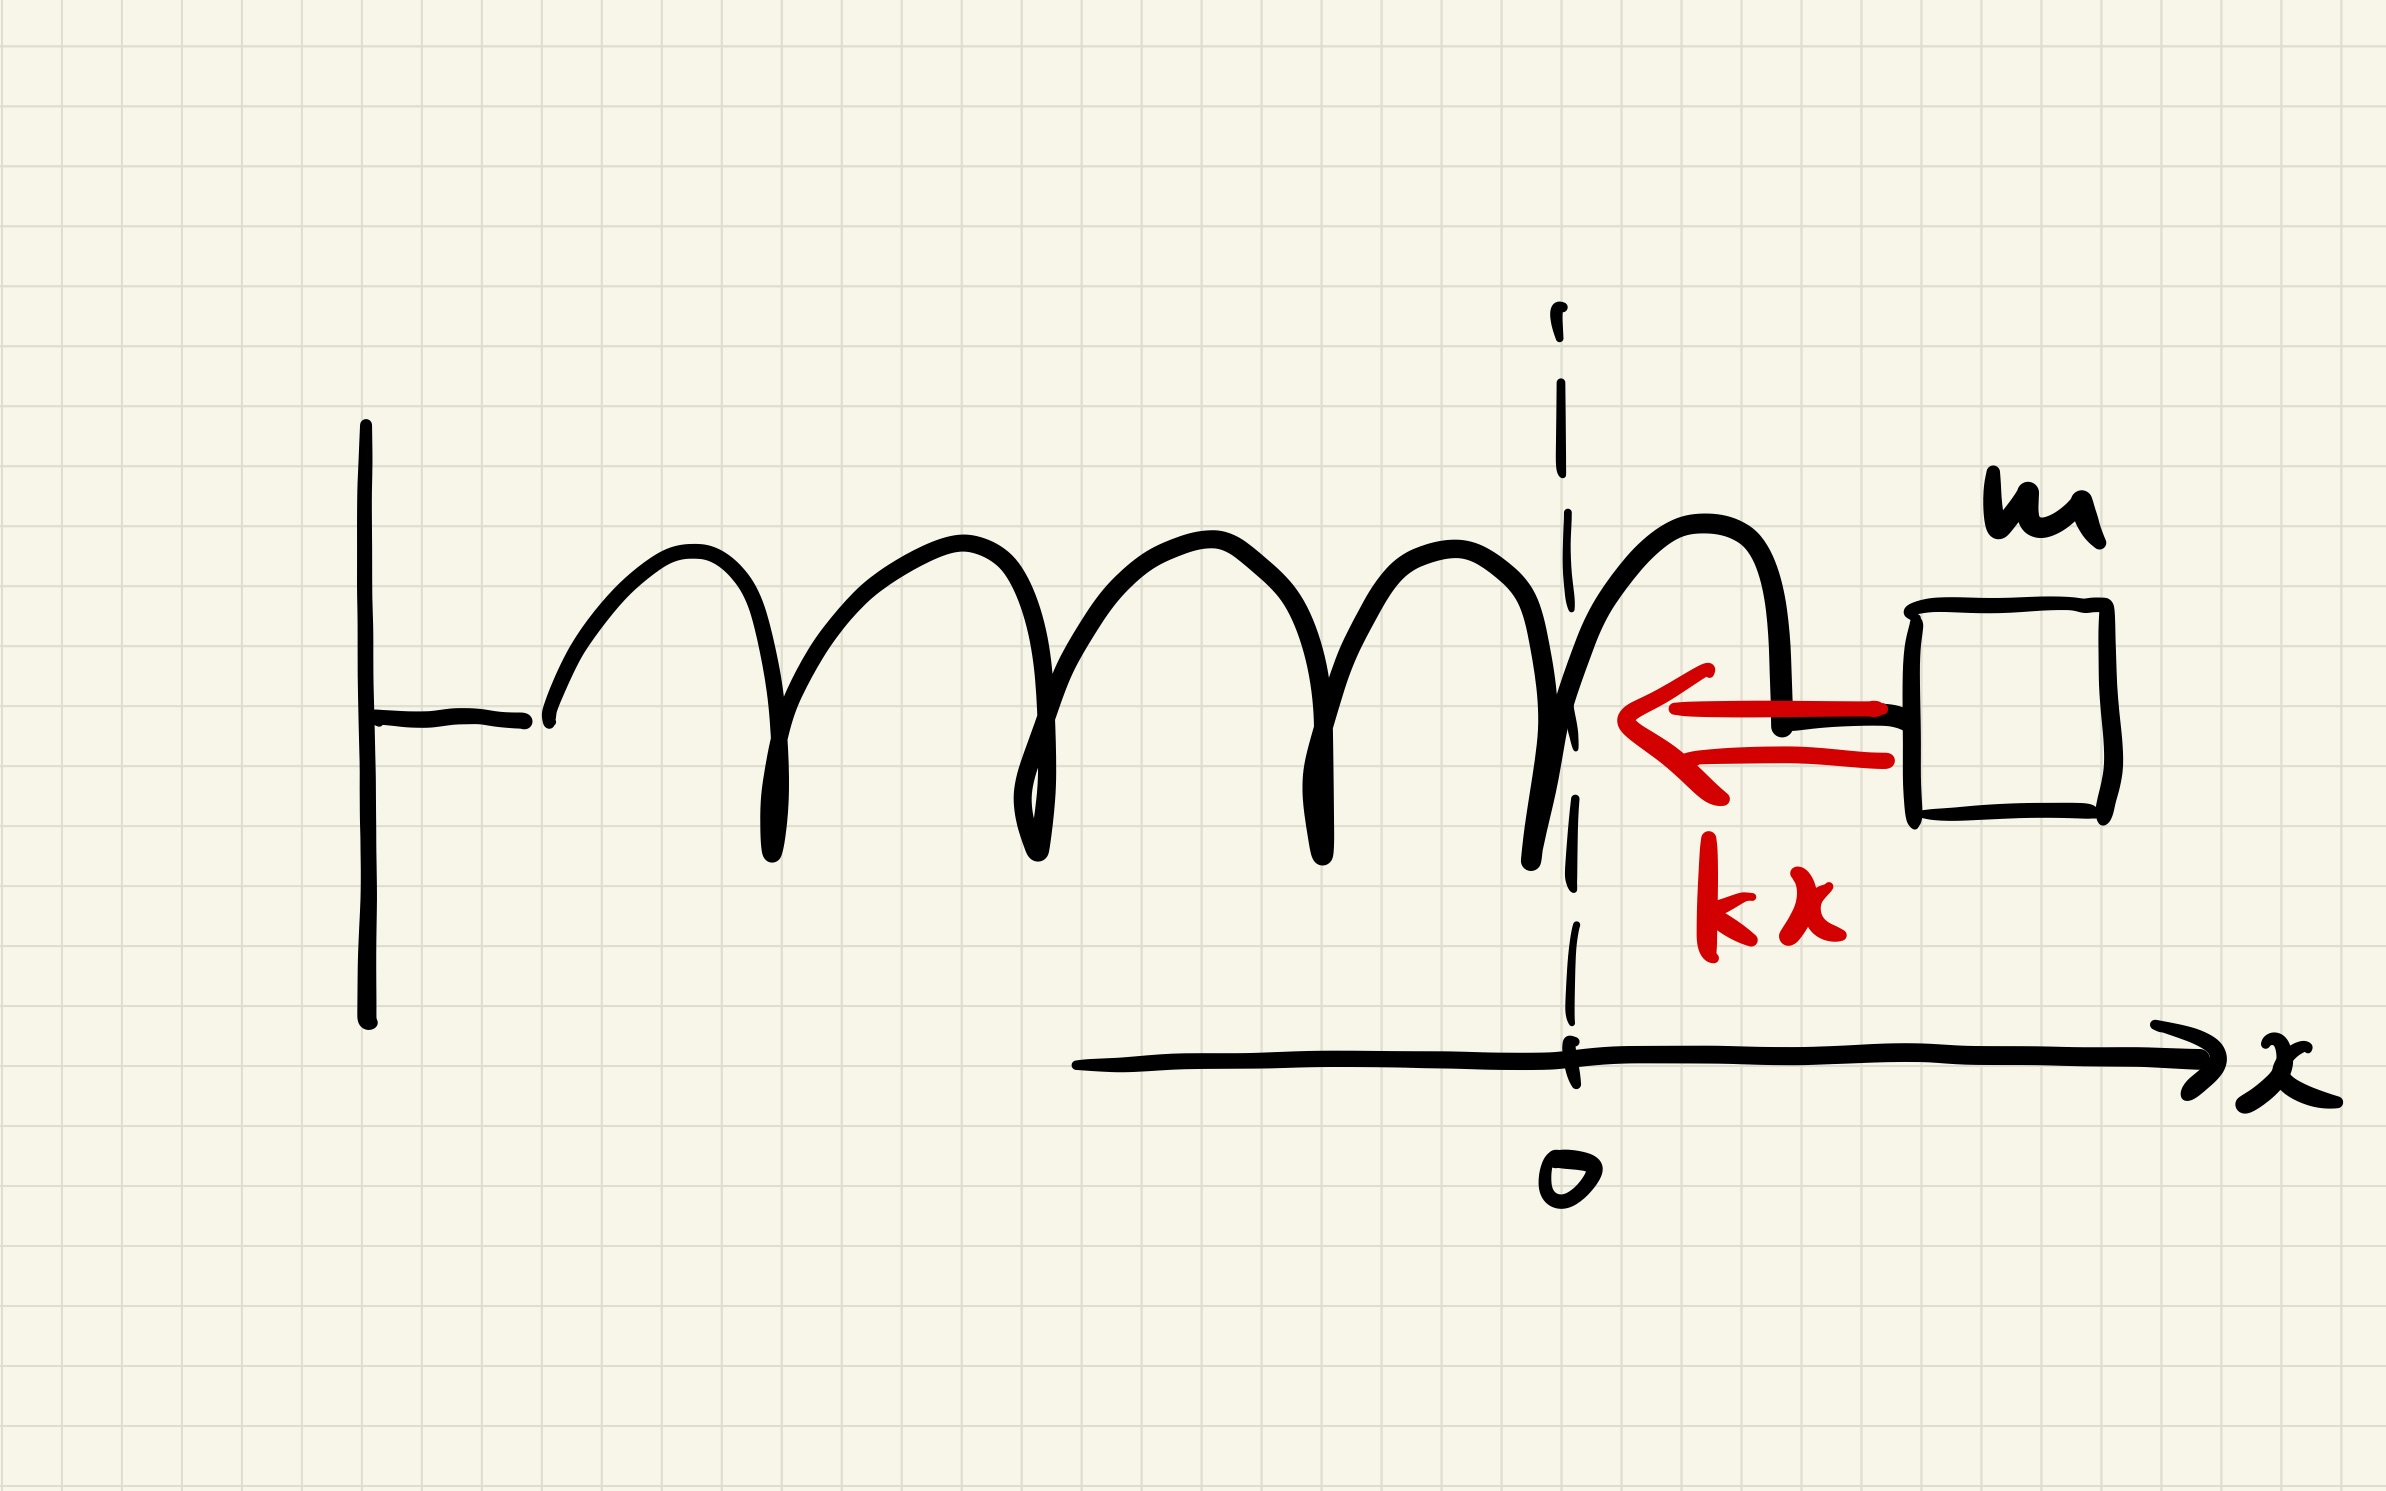 m
kx
x
0